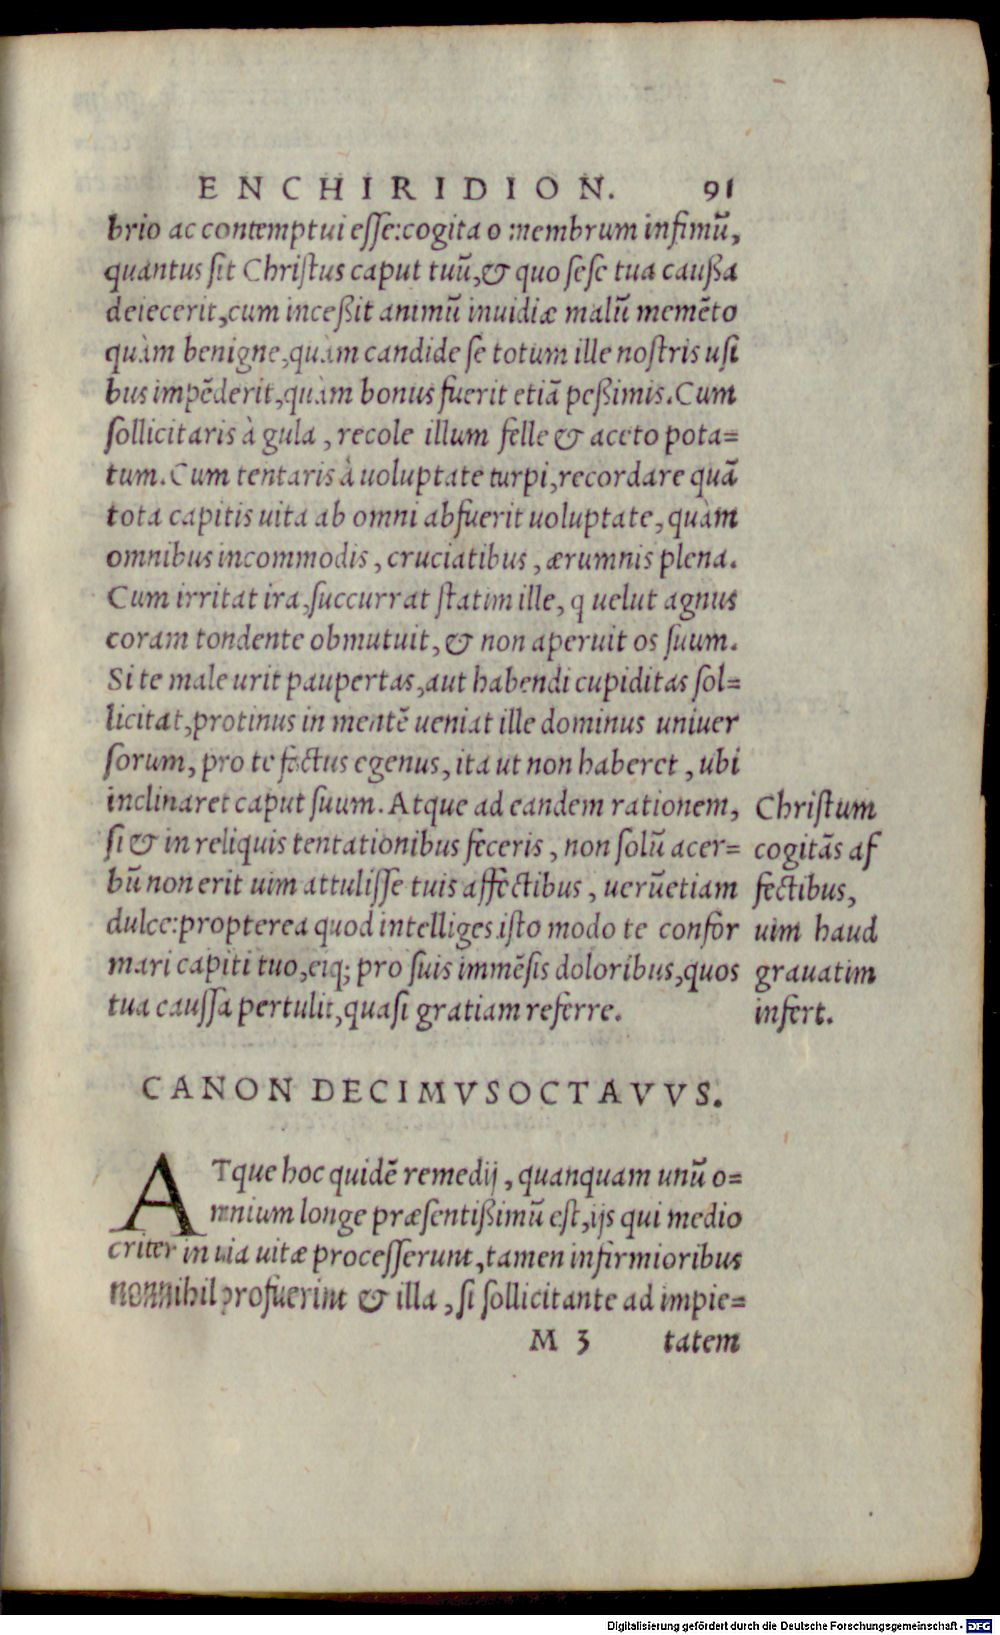 ENCHIRIDION. 91
brio ac contemptui esse:cogita o membrum infimū,
quantus sit Christus caput tuū,& quo sese tua caußa
deiecerit,cum inceßit animū inuidiæ malū memēto
quàm benigne,quàm candide se totum ille nostris usi
bus impēderit,quàm bonus fuerit etiā peßimis.Cum
sollicitaris à gula, recole illum felle & aceto pota=
tum.Cum tentaris à uoluptate turpi,recordare quā
tota capitis uita ab omni abfuerit uoluptate, quàm
omnibus incommodis, cruciatibus, ærumnis plena.
Cum irritat ira,succurrat statim ille, q uelut agnus
coram tondente obmutuit, & non aperuit os suum.
Si te male urit paupertas,aut habendi cupiditas sol=
licitat,protinus in mentē ueniat ille dominus uniuer
sorum, pro te factus egenus, ita ut non haberet, ubi
inclinaret caput suum. Atque ad eandem rationem,
si & in reliquis tentationibus feceris, non solū acer=
bū non erit uim attulisse tuis affectibus, uerūetiam
dulce:propterea quod intelliges isto modo te confor
mari capiti tuo,eiq; pro suis immēsis doloribus,quos
tua caussa pertulit,quasi gratiam referre.
Christum
cogitās af
fectibus,
uim haud
grauatim
infert.
CANON DECIMVSOCTAVVS.
ATque hoc quidē remedij, quanquam unū o=
mnium longe præsentißimū est,ijs qui medio
criter in uia uitæ processerunt,tamen infirmioribus
nonnihil profuerint & illa, si sollicitante ad impie=
M 3 tatem
Digitalisierung gefördert durch die Deutsche Forschungsgemeinschaft - DFG